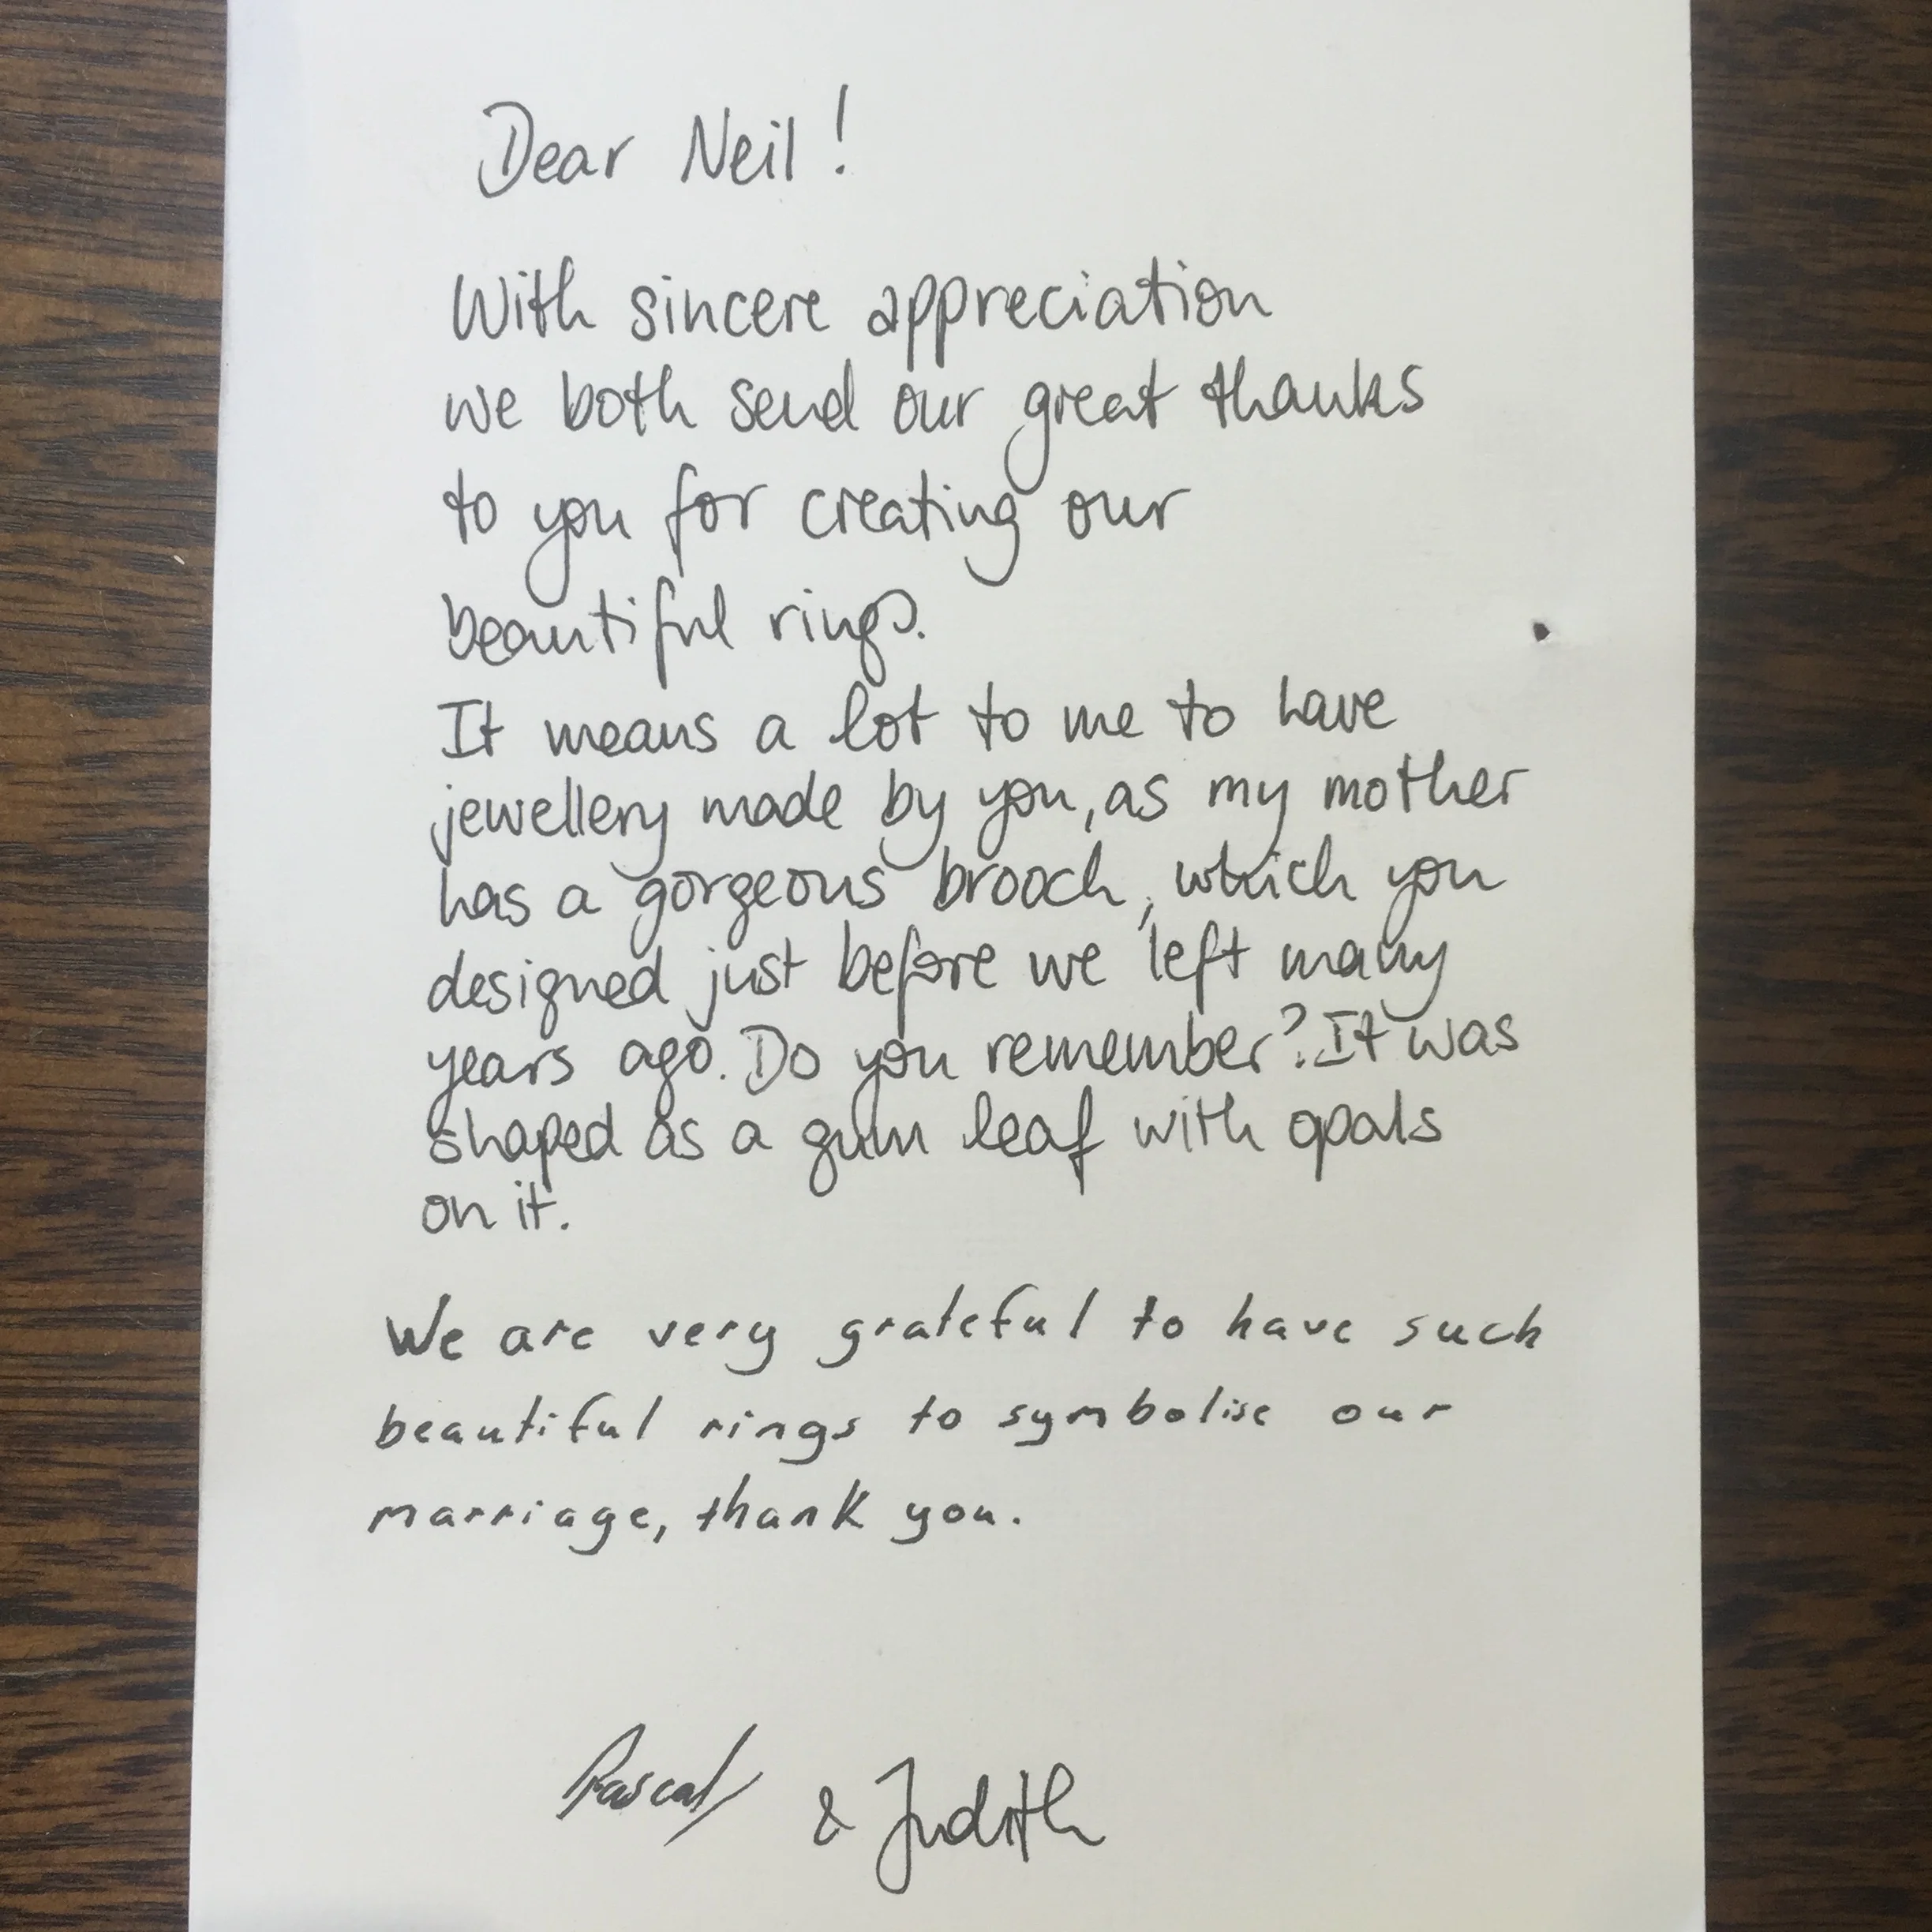 Dear Neil!
With sincere appreciation
we both send our great thanks
to you for creating our
beautiful rings.
It means a lot to me to have
jewellery made by you, as my mother
has a gorgeous brooch, which you
designed just before we left many
years ago. Do you remember? It was
shaped as a gum leaf with opals
on it.
We are very grateful to have such
beautiful rings to symbolise our
marriage, thank you.
Pascal & Judith